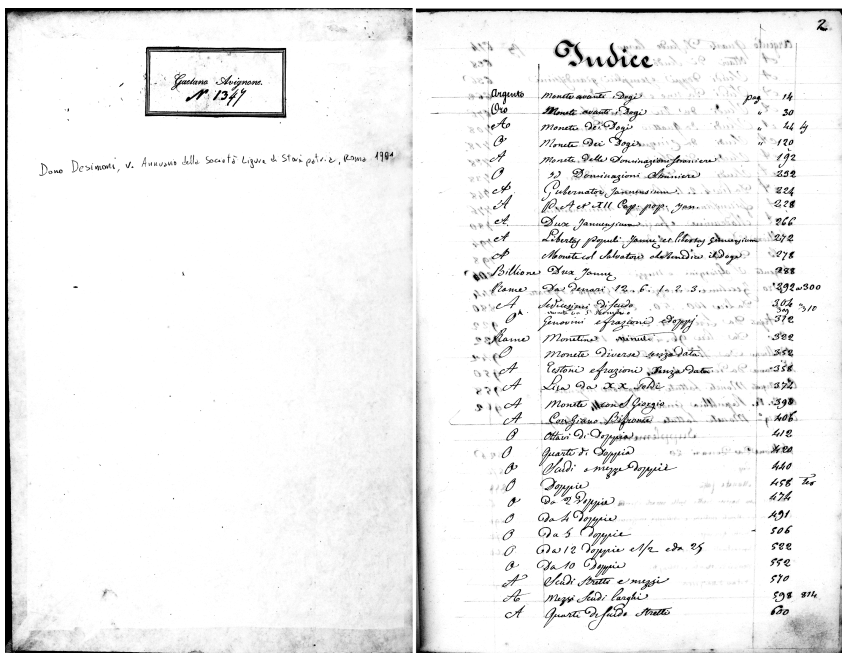 Gaetano Avignone
N. 1347
Dono Desimoni, v. Annuario della Società Ligure di Storia patria, Roma 1901
2
Indice
Argento Monete avanti i Dogi pag 14
Oro Monete avanti i Dogi " 30
A Monete dei Dogi " 44
O Monete Dei Dogi " 120
A Monete delle Dominazioni straniere 192
O Dominazioni straniere 252
A Gubernator Januensium 224
A P. A et XII Cap. pop. Jan. 228
A Dux Januensium 266
A Libertas populi Janue et libertas Januensium 272
A Monete col Salvatore che benedice il Doge 278
Billione Dux Janue 288
Rame Da denari 12. 6. 4. 2. 3. 292 a 300
A Divisioni di scudo 304
Genovini e frazioni e Doppj 312 310
Rame Monetine minuti 322
O Monete diverse senza data 352
A Testoni e frazioni senza data 358
A Lira da XX soldi 374
A Monete con S. Giorgio 398
A Con Giano Bifronte 406
O Ottavi di Doppia 412
O Quarti di Doppia 420
O Scudi o mezze doppie 440
O Doppie 458 ter
O Da 2 Doppie 474
O Da 4 doppie 491
O Da 5 doppie 506
O Da 12 doppie e 1/2 e da 25 522
O Da 10 Doppie 552
A Scudi stretti e mezzi 570
A Mezzi Scudi larghi 598 814
A Quarti di scudo stretti 600